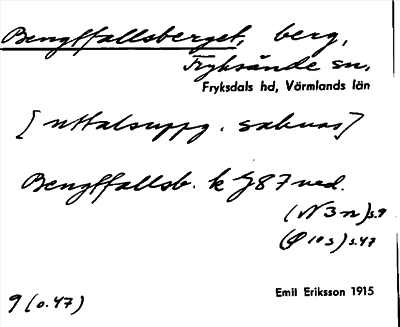 Bengtfallsberget, berg,
Fryksände sn,
Fryksdals hd, Värmlands län
[uttalsuppg. saknas]
Bengtfallsb. k J87 ned.
(N3n) s.9
(Ø10s) s.47
Emil Eriksson 1915
9 (o.47)